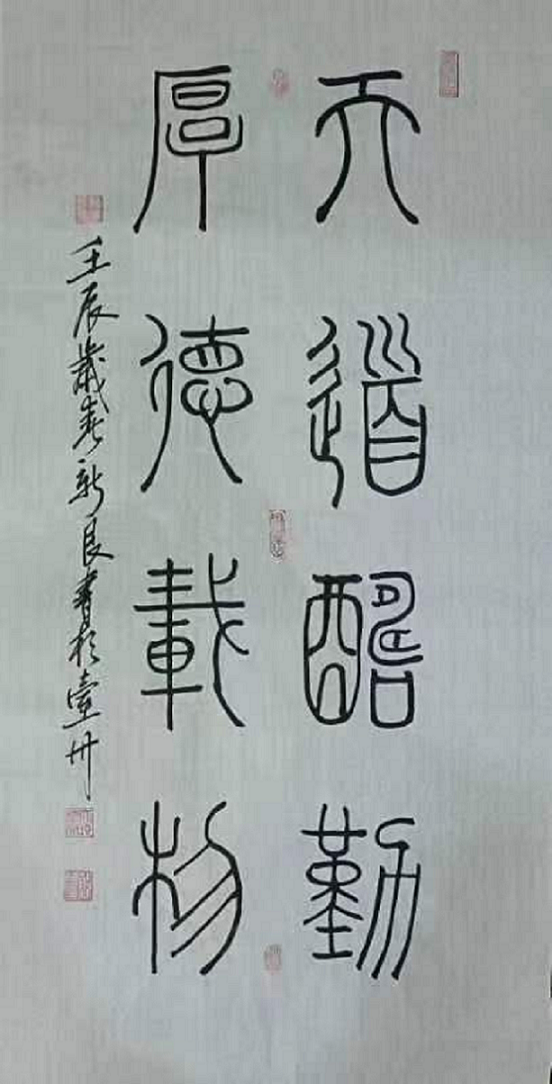 天道酬勤
厚德載物
壬辰歲春新良書於壹州